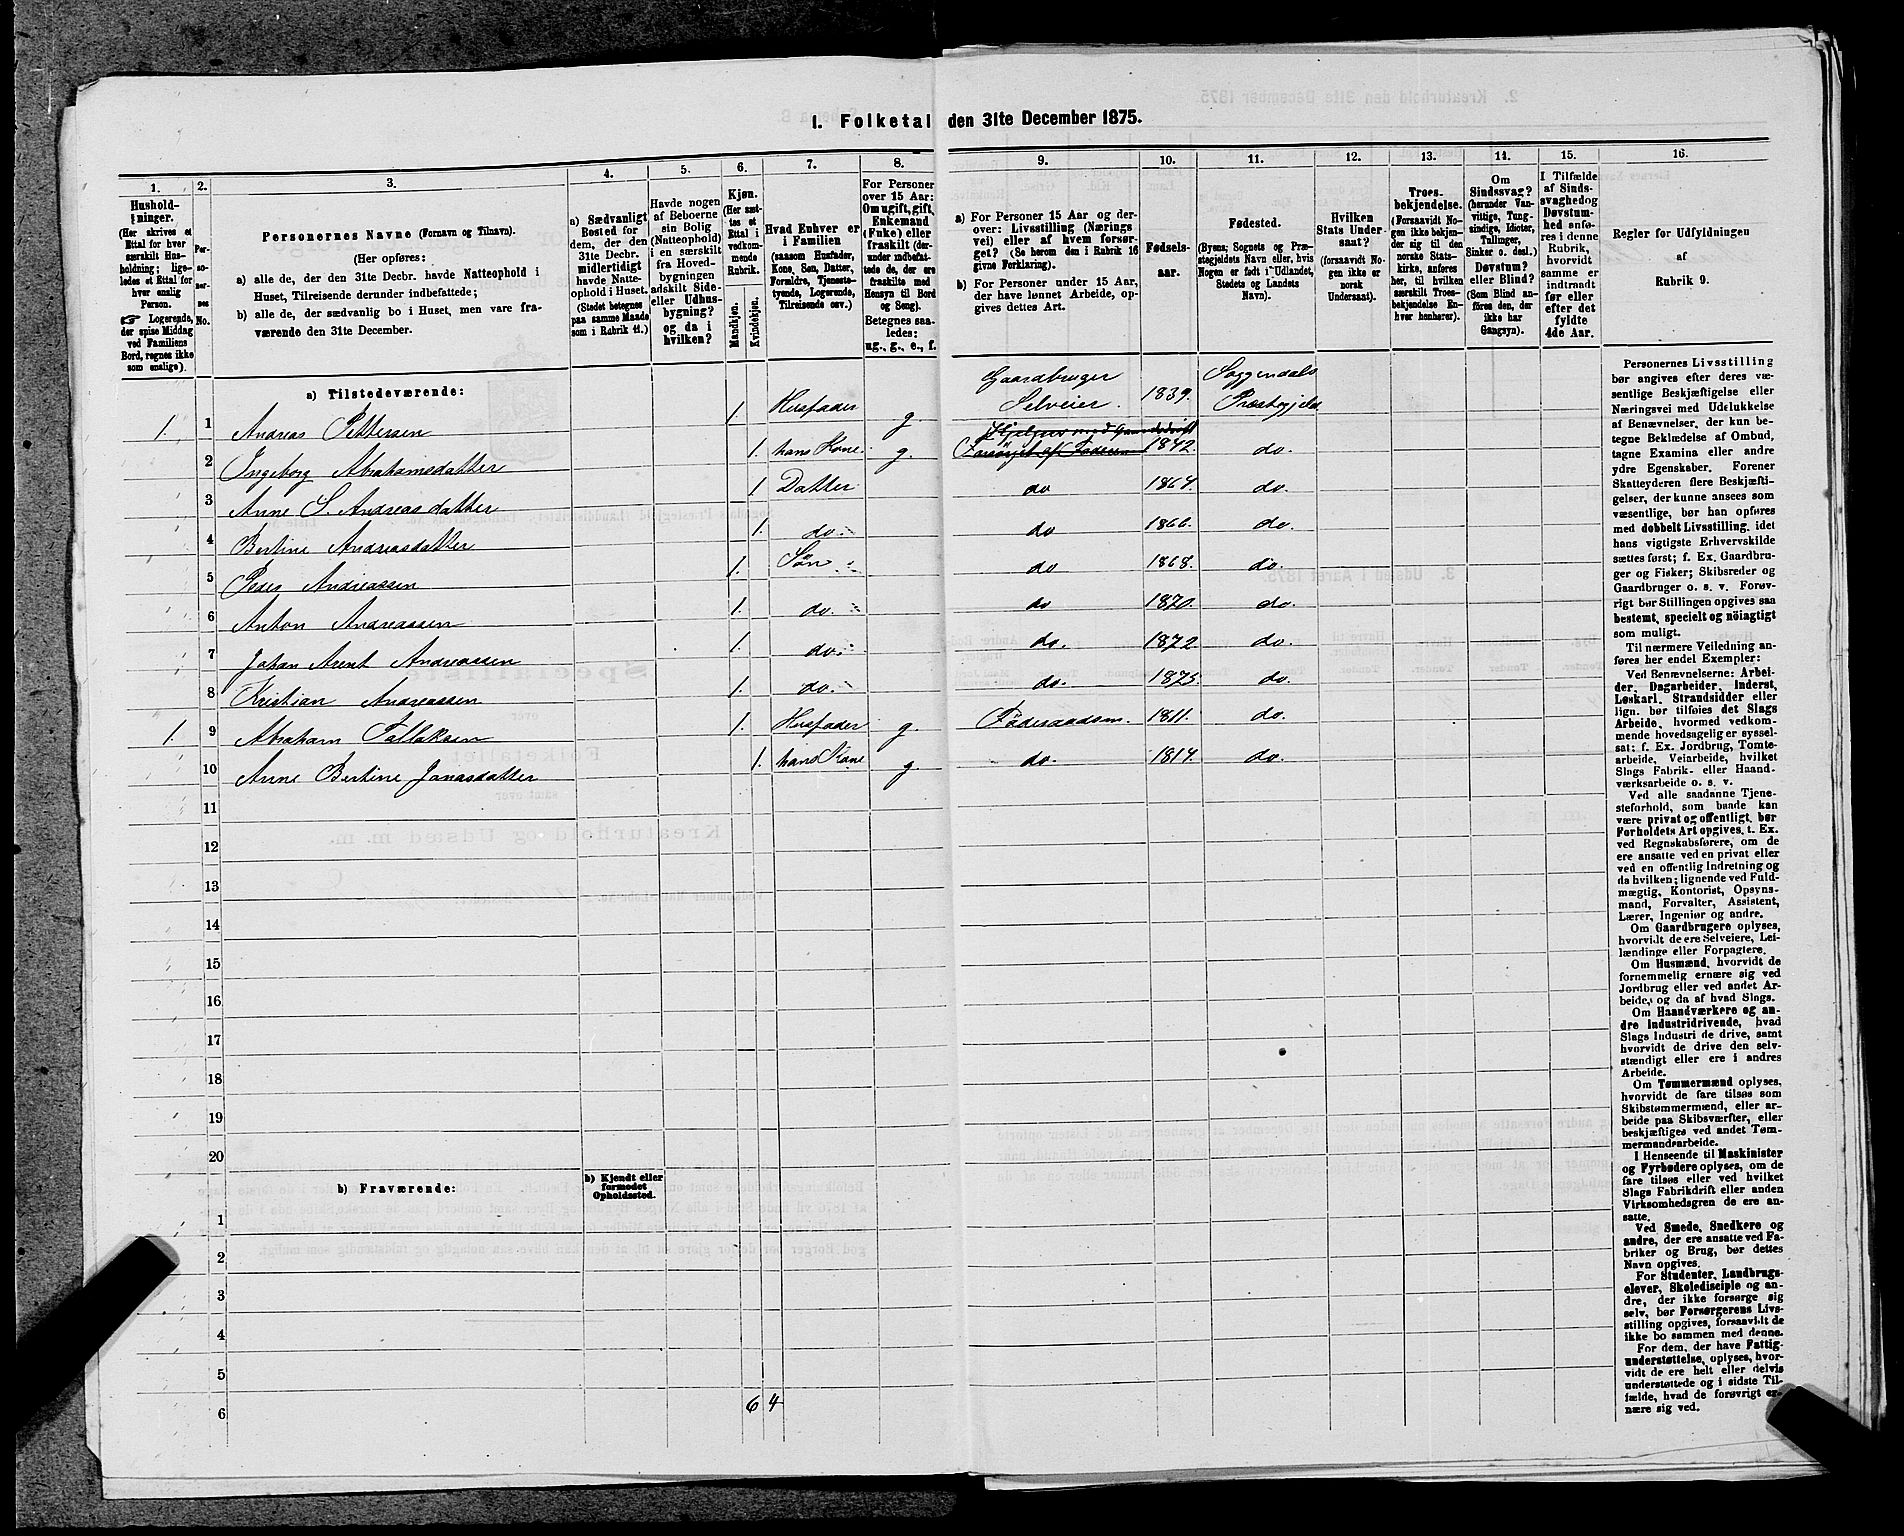 I. Folketal den 31te December 1875.
1. 2. 3. 4. 5. 6. 7. 8. 9. 10. 11. 12. 13. 14. 15. 16.
Hushold-
ninger.
(Her skrives et
Ettal for hver
særskilt Hus-
holdning; lige-
ledes et Ettal for
hver enslig
Person.
☞ Logerende,
der spise Middag
ved Familiens
Bord, regnes ikke
som enslige).
Per-
so-
ner-
nes
No.
Personernes Navne (Fornavn og Tilnavn).
(Her opføres:
a) alle de, der den 31te Decbr. havde Natteophold i
Huset, Tilreisende derunder indbefattede;
b) alle de, der sædvanlig bo i Huset, men vare fra-
værende den 31te December.
a) Sædvanligt
Bosted for
dem, der den
31te Decbr.
midlertidigt
havde Natte-
ophold i Huset.
(Stedet betegnes
paa samme Maade
som i Rubrik 11.)
Havde nogen
af Beboerne
sin Bolig
(Natteophold)
i en særskilt
fra Hoved-
bygningen
adskilt Side-
eller Udhus-
bygning?
og da i
hvilken?
Kjøn.
(Her sæt-
tes et
Ettal i
vedkom-
mende
Rubrik.
Mandkjøn.
Kvindekjøn.
Hvad Enhver er
i Familien
(saasom Husfader,
Kone, Søn, Datter,
Forældre, Tjeneste-
tyende, Logerende,
Tilreisende osv.)
For Personer
over 15 Aar:
Om ugift, gift,
Enkemand
(Enke) eller
fraskilt (der-
under indbefat-
tede de, der ere
fraskilte med
Hensyn til Bord
og Seng).
Betegnes saa-
ledes:
ug., g., e., f.
a) For Personer 15 Aar og der-
over: Livsstilling (Nærings
vei) eller af hvem forsør-
get? (Se herom den i Rubrik 16
givne Forklaring).
b) For Personer under 15 Aar,
der have lønnet Arbeide, op-
gives dettes Art.
Fødsels-
aar.
Fødested.
(Byens, Sognets og Præ-
stegjeldets Navn eller, hvis
Nogen er født i Udlandet,
Stedets og Landets
Navn).
Hvilken
Stats Under-
saat?
(forsaavidt No-
gen ikke er
norsk
Undersaat).
Troes-
bekjendelse.
(Forsaavidt No-
gen ikke bekjen-
der sig til den
norske Stats-
kirke, anføres
her, til hvilken
særskilt Troes-
bekjendelse En-
hver henhører).
Om
Sindssvag?
(herunder Van-
vittige, Tung-
sindige, Idioter,
Tullinger,
Sinker o. desl.)
Døvstum?
eller Blind?
(Som Blind an-
føres den, der
ikke har
Gangsyn).
I Tilfælde
af Sinds-
svaghed og
Døvstum-
hed anfø-
res i denne
Rubrik,
hvorvidt
samme er
indtraadt
før eller
efter det
fyldte
4de Aar.
Regler for Udfyldningen
af
Rubrik 9.
a) Tilstedeværende:
1. 1 Andreas Pettersen 1. Husfader g. Gaardbruger Selveier. 1839. Soggendals Præstegjeld
2 Ingeborg Abrahamsdatter 1. hans Kone. g. 1842. do.
3 Anne S. Andreasdatter 1 Datter do 1864. do.
4 Bertine Andreasdatter 1. do. do 1866. do.
5 Peder Andreassen 1. Søn do 1868. do.
6 Anton Andreassen 1. do. do 1870. do.
7 Johan Arent Andreassen 1. do. do. 1872. do.
8 Kristian Andreassen 1. do. do. 1875. do.
1. 9 Abraham Tallaksen 1. Husfader g. Føderaadsm. 1811. do.
10 Anne Bertine Jonasdatter 1. hans Kone g. do. 1814. do.
11
12
13
14
15
16
17
18
19
20
b) Fraværende:
b) Kjendt eller
formodet
Opholdssted.
1
2
3
4
5
6
6 4
Personernes Livsstilling
bør angives efter deres væ-
sentlige Beskjæftigelse eller
Næringsvei med Udelukkelse
af Benævnelser, der kun be-
tegne Beklædelse af Ombud,
tagne Examina eller andre
ydre Egenskaber. Forener
Skatteyderen flere Beskjæfti-
gelser, der kunne ansees som
væsentlige, bør han opføres
med dobbelt Livsstilling, idet
hans vigtigste Erhvervskilde
sættes først; f. Ex. Gaardbru-
ger og Fisker; Skibsreder og
Gaardbruger o. s. v. Forøv-
rigt bør Stillingen opgives saa
bestemt, specielt og nöiagtigt
som muligt.
Til nærmere Veiledning an-
føres her endel Exempler:
Ved Benævnelserne: Arbei-
der, Dagarbeider, Inderst,
Løskarl, Strandsidder eller
lign. bør tilføies det Slags
Arbeide, hvormed vedkom-
mende hovedsagelig er syssel-
sat; f. Ex. Jordbrug, Tomte-
arbeide, Veiarbeide, hvilket
Slags Fabrik- eller Haand-
værksarbeide o. s. v.
Ved alle saadanne Tjene-
steforhold, som baade kan
være privat og offentligt, bør
Forholdets Art opgives, t. Ex.
ved Regnskabsførere, om de
ere ansatte ved en privat eller
ved en offentlig Indretning og
da hvilken; lignende ved Fuld-
mægtig, Kontorist, Opsyns-
mand, Forvalter, Assistent,
Lærer, Ingeniør og andre.
Om Gaardbrugere oplyses,
hvorvidt de ere Selveiere, Lei-
lændinge eller Forpagtere.
Om Husmænd, hvorvidt de
fornemmelig ernære sig ved
Jordbrug eller ved andet Ar-
beide, og da af hvad Slags.
Om Haandværkere og an-
dre Industridrivende, hvad
Slags Industri de drive, samt
hvorvidt de drive den selv-
stændigt eller ere i andres
Arbeide.
Om Tømmermænd oplyses,
hvorvidt de fare tilsøs som
Skibstømmermænd, eller ar-
beide paa Skibsværfter, eller
beskjæftiges ved andet Tøm-
mermandsarbeide.
I Henseende til Maskinister
og Fyrbødere oplyses, om de
fare tilsøs eller ved hvilket
Slags Fabrikdrift eller anden
Virksomhedsgren de ere an-
satte.
Ved Smede, Snedkere og
andre, der ere ansatte ved Fa-
briker og Brug, bør dettes
Navn opgives.
For Studenter, Landbrugs-
elever, Skoledisciple og an-
dre, der ikke forsørge sig
selv, bør Forsørgerens Livs-
stilling opgives, forsaavidt de
ikke bo sammen med denne.
For dem, der have Fattig-
understøttelse, oplyses, hvor-
vidt de ere helt eller delvis
understøttede og i sidste Til-
fælde, hvad de forøvrigt er-
nære sig ved.